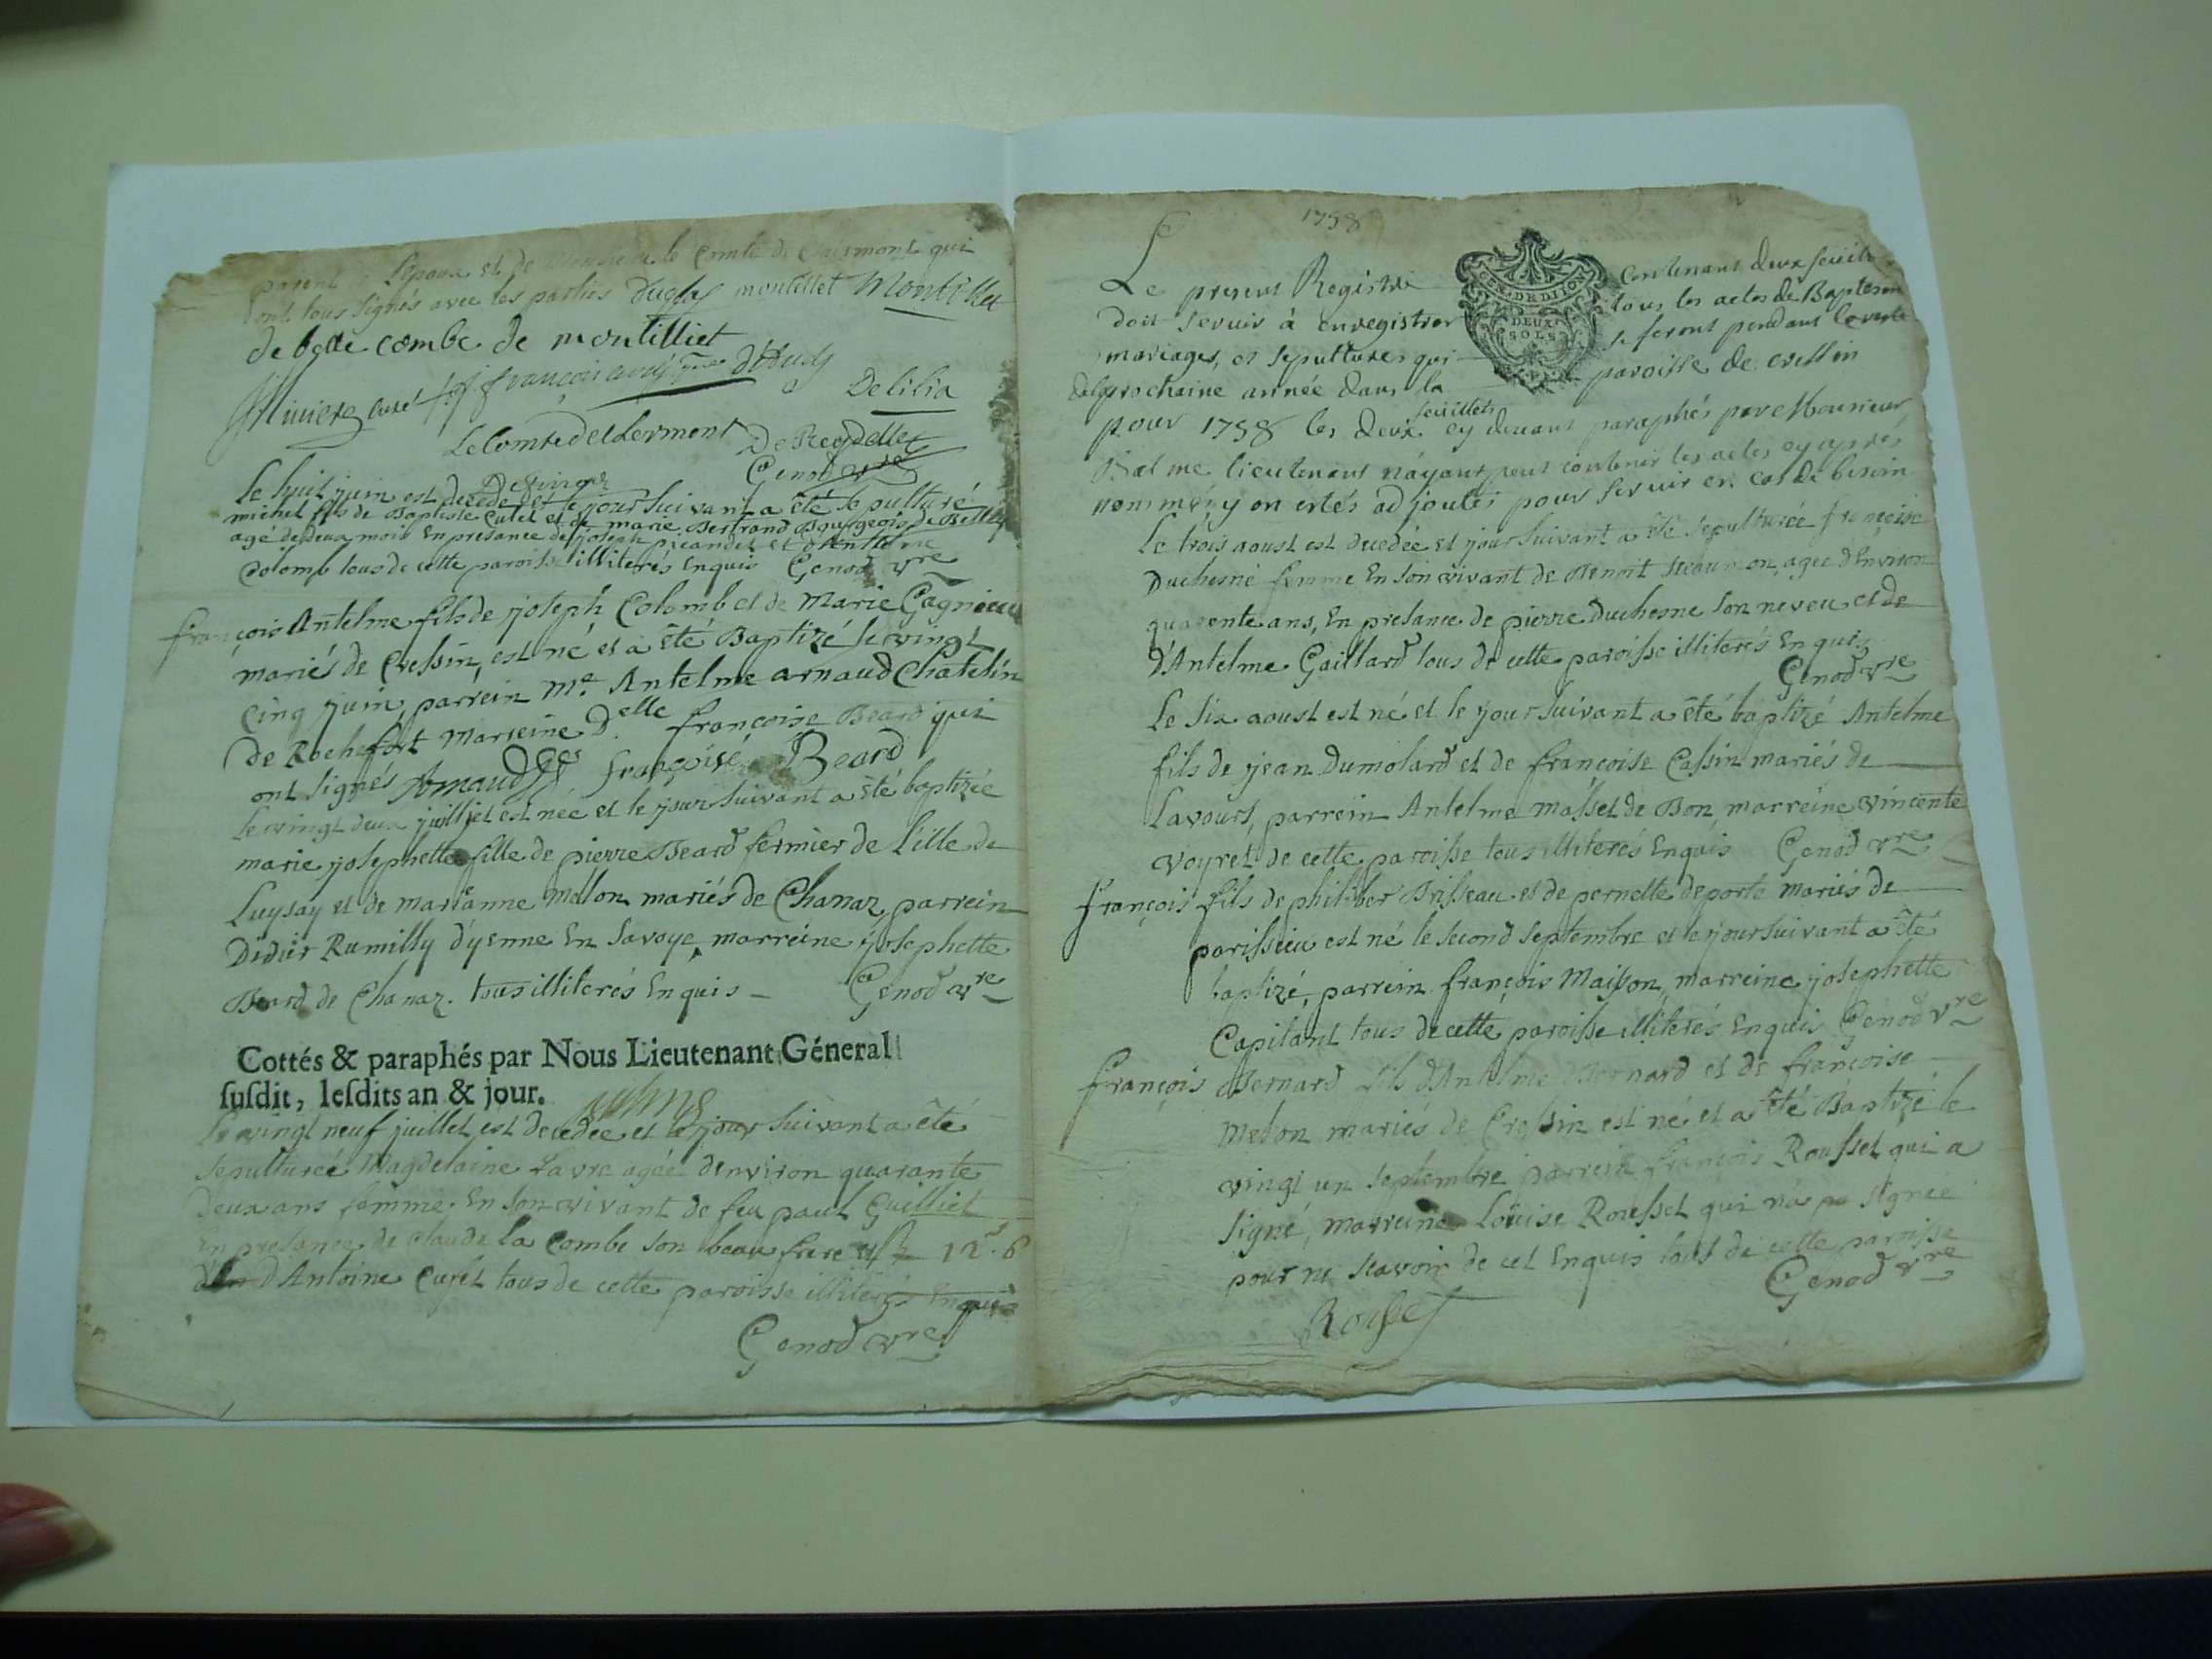 parent de l'epoux et de Monsieur le Comte de Clermont qui
ont tous signés avec les parties Duglas montillet Montillet
de belle combe de montilliet
Riviere curé françois D'Audy
Delilia
Le Comte de Clermont De Reydellet
Genod vre
Le huit juin est decedé et le jour suivant a été sepulturé
michel fils de Baptiste Cutel et de marie Bertrand Bourgeois de Belley
agé de deux mois En presance de joseph picandet et d'Antelme
Colomb tous de cette paroisse illiterés Enquis Genod vre
françois Antelme fils de joseph Colomb et de Marie Gagnieux
mariés de Cressin, est né et a été Baptizé le vingt
cinq juin, parrein Me. Antelme arnaud Chatelin
de Rochefort Marreine Delle françoise Beard qui
ont signés Arnaud françoise Beard
Le vingt deux juilliet est née et le jour suivant a été baptizée
marie josephette fille de pierre Beard fermier de L'ille de
Luysay et de marianne melon mariés de Chanaz, parrein
Didier Rumilly d'yenne En Savoye, marreine josephette
Beard de Chanaz. tous illiterés Enquis - Genod vre
Cottés & paraphés par Nous Lieutenant Géneral
susdit, lesdits an & jour.
Le vingt neuf juillet est decedée et le jour suivant a été
sepulturée Magdelaine Favre agée denviron quarante
deux ans femme En son vivant de feu paul Guilliet
En presance de Claude la Combe son beau frere et 12s. 6
d'Antoine Curet tous de cette paroisse illiterés Enquis
Genod vre
1758
Le present Registre Contenant deux feuillets
doit servir à enregistrer tous les actes de Baptesme
mariages, et sepultures qui se feront pendant le reste
de la prochaine année dans la paroisse de cressin
pour 1758 les deux feuillets cy devant paraphés par Monsieur
Balme lieutenant n'ayant peut contenir les actes cy apres
nommés y on estés adjoutés pour servir en cas de besoin
Le trois aoust est decedée et jour suivant a été sepulturée françoise
Duchesne femme En son vivant de Benoit agée d'Environ
quarente ans, En presance de pierre Duchesne son neveu et de
d'Antelme Gaillard tous de cette paroisse illiterés Enquis
Genod vre
Le six aoust est né et le jour suivant a été baptizé Antelme
fils de jean Dumolard et de françoise Cassin mariés de
Lavours, parrein Antelme masset de Bon, marreine vincente
voyret de cette paroisse tous illiterés Enquis Genod vre
François fils de philiber Brisseau et de pernette deporte mariés de
parissieu est né le second septembre et le jour suivant a été
baptizé, parrein françois Maison, marreine josephette
Capitant tous de cette paroisse illiterés Enquis Genod vre
François Bernard fils d'Antelme Bernard et de françoise
Melon mariés de Cressin est né et a été Baptizé le
vingt un septembre parrein françois Rousset qui a
signé, marreine Loüise Rousset qui n'a pa signée
pour ne scavoir de cet Enquis tous de cette paroisse
Genod vre
Rousset
GEN. DE DIJON
DEUX
SOLS